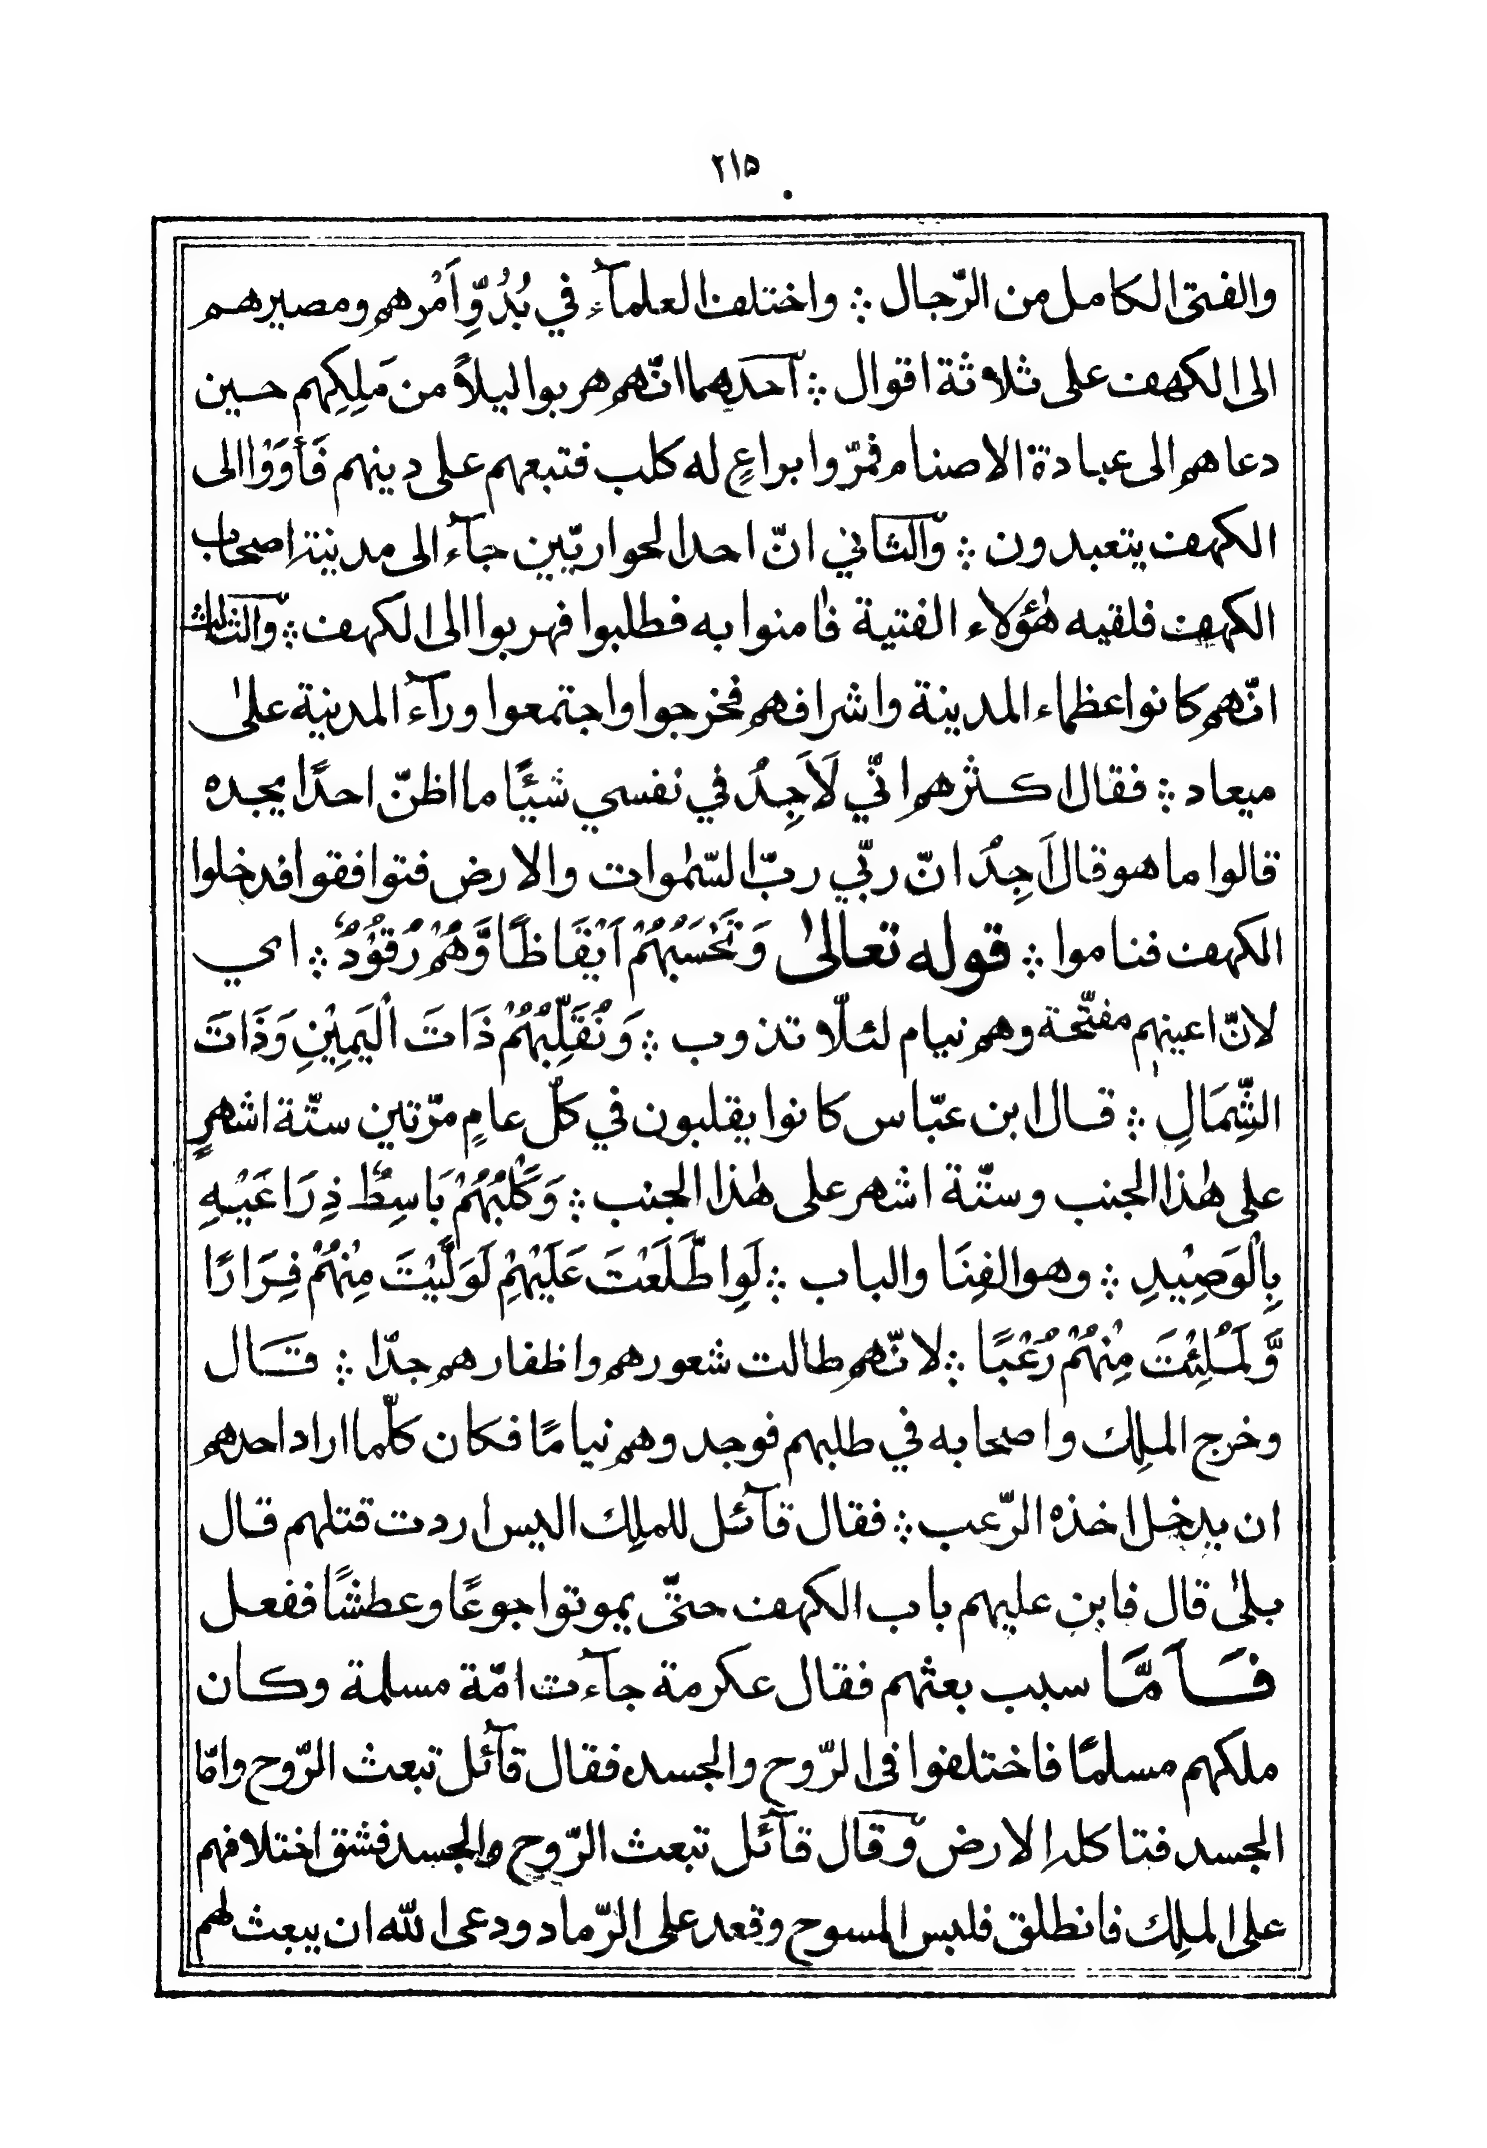 ٢١٥
والفتى الكامل من الرّجال ؞ واختلف العلمآء في بُدُوِّ اَمْرهم ومصيرهم
الى الكهف على ثلاثة اقوال ؞ آحدهما انّهم هربوا ليلاً من مَلِكِهم حين
دعاهم الى عبادة الاصنام فمرّوا براعٍ له كلب فتبعهم على دينهم فَأَوَوْا الى
الكهف يتعبدون ؞ والثاني انّ احد الحواريّين جآء الى مدينة اصحاب
الكهف فلقيه هٰؤلاء الفتية فاٰمنوا به فطلبوا فهربوا الى الكهف ؞ والثالث
انّهم كانوا عظماء المدينة واشرافهم فخرجوا واجتمعوا ورآء المدينة علىٰ
ميعاد ؞ فقال اكثرهم انّي لَاَجِدُ في نفسي شيئًا ما اظنّ احدًا يجده
قالوا ما هو قال اَجِدُ انّ ربّي ربّ السّمٰوات والارض فتوافقوا فدخلوا
الكهف فناموا ؞ قوله تعالىٰ وَتَحْسَبُهُمْ اَيْقَاظًا وَّهُمْ رُقُوْدٌ ؞ اي
لانّ اعينهم مفتّحة وهم نيام لئلّا تذوب ؞ وَنُقَلِّبُهُمْ ذَاتَ الْيَمِيْنِ وَذَاتَ
الشِّمَالِ ؞ قال ابن عبّاس كانوا يقلبون في كلّ عامٍ مرّتين ستّة اشهرٍ
على هٰذا الجنب وستّة اشهر على هٰذا الجنب ؞ وَكَلْبُهُمْ بَاسِطٌ ذِرَاعَيْهِ
بِالْوَصِيْدِ ؞ وهو الفِنَا والباب ؞ لَوِ اطَّلَعْتَ عَلَيْهِمْ لَوَلَّيْتَ مِنْهُمْ فِرَارًا
وَّلَمُلِئْتَ مِنْهُمْ رُعْبًا ؞ لانّهم طالت شعورهم واظفارهم جدًّا ؞ قال
وخرج الملِك واصحابه في طلبهم فوجدوهم نيامًا فكان كلّما اراد احدهم
ان يدخل اخذه الرّعب ؞ فقال قآئل للملِك اليس اردت قتلهم قال
بلىٰ قال فابن عليهم باب الكهف حتّى يموتوا جوعًا وعطشًا ففعل
فَاَمَّا سبب بعثهم فقال عكرمة جآءت امّة مسلمة وكان
ملكهم مسلمًا فاختلفوا في الرّوح والجسد فقال قآئل تبعث الرّوح وامّا
الجسد فتاكله الارض وقال قآئل تبعث الرّوح والجسد فشق اختلافهم
على الملِك فانطلق فلبس المسوح وقعد على الرّماد ودعى الله ان يبعث لهم